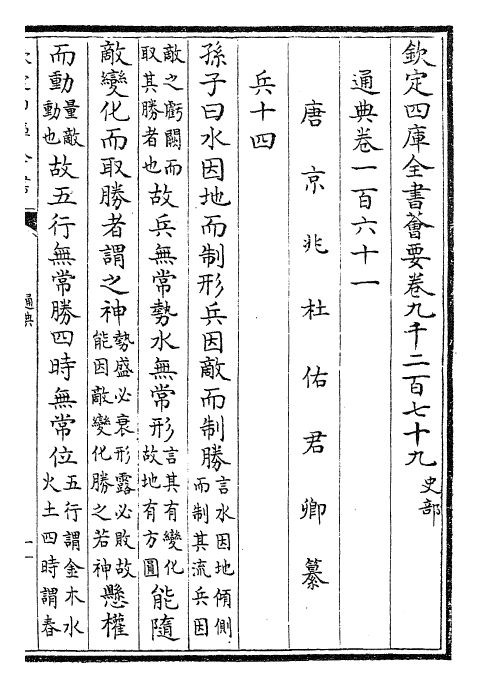 欽定四庫全書薈要卷九千二百七十九 史部
通典卷一百六十一
唐京兆杜佑君卿纂
兵十四
孫子曰水因地而制形兵因敵而制勝言水因地傾側而制其流兵因
敵之虧闕而取其勝者也故兵無常勢水無常形言其有變化故地有方圓能隨
敵變化而取勝者謂之神勢盛必衰形露必敗故能因敵變化勝之若神懸權
而動量敵動也故五行無常勝四時無常位五行謂金木水火土四時謂春
通典
一